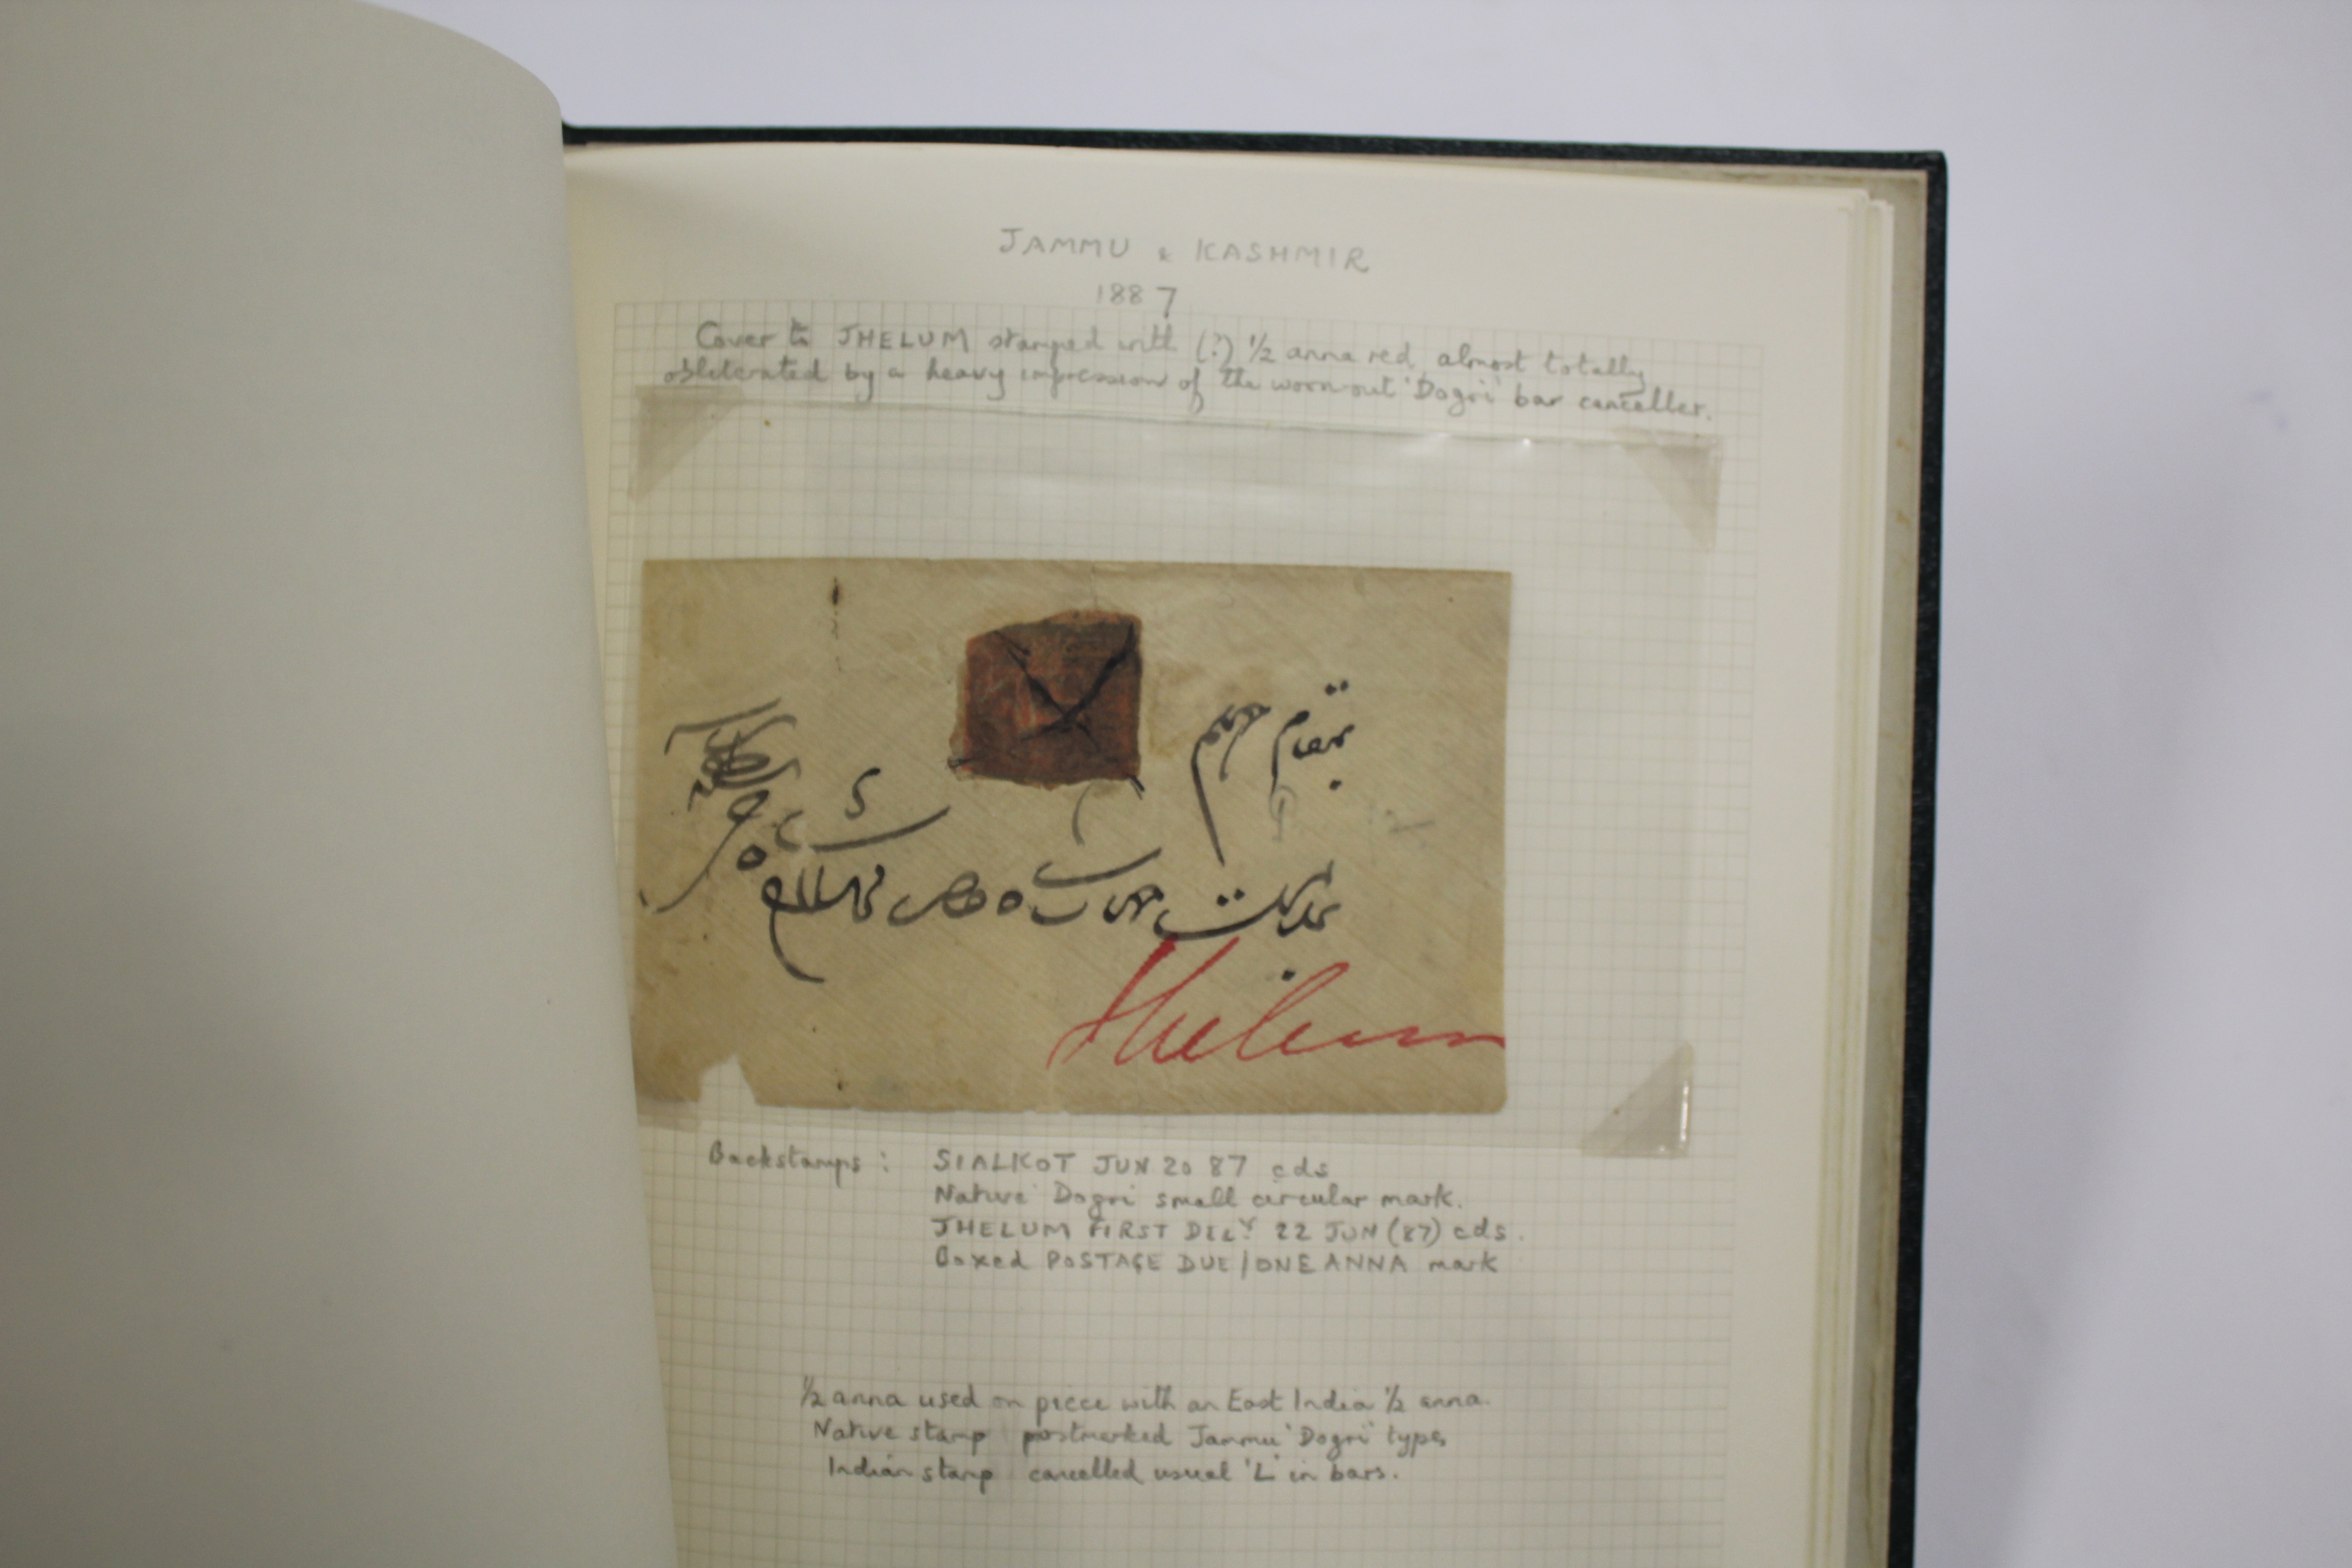 JAMMU & KASHMIR
1887
Cover to JHELUM stamped with (?) 1/2 anna red, almost totally
obliterated by a heavy impression of the worn-out 'Dogri' bar canceller.
بمقام جہلم
Jhelum
Backstamps : SIALKOT JUN 20 87 cds
Native 'Dogri' small circular mark.
JHELUM FIRST DELY 22 JUN (87) cds.
Boxed POSTAGE DUE / ONE ANNA mark
1/2 anna used on piece with an East India 1/2 anna.
Native stamp postmarked Jammu 'Dogri' type,
Indian stamp cancelled usual 'L' in bars.